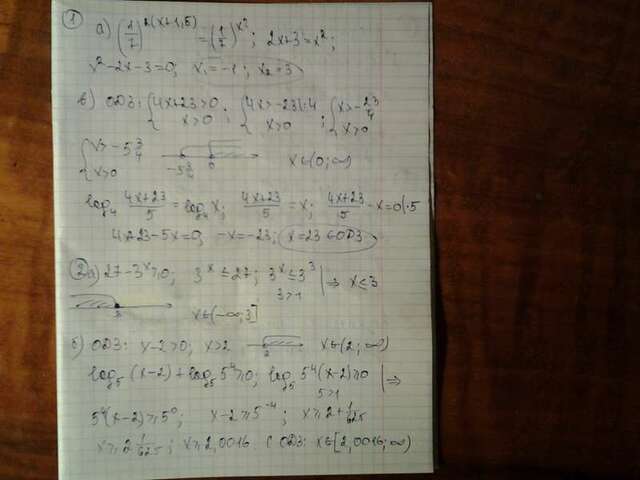 ① а) (1/7)^2(x+1,5) = (1/7)^x²; 2x+3=x²;
x²-2x-3=0; x₁=-1; x₂=3
в) ОДЗ: {4x+23>0 x>0; {4x>-23|:4 x>0; {x>-23/4 x>0
{x>-5 3/4 x>0 -5 3/4 0 x∈(0;∞)
log₄ (4x+23)/5 = log₄ x; (4x+23)/5 = x; (4x+23)/5 - x=0|·5
4x+23-5x=0; -x=-23; x=23 ∈ОДЗ
② а) 27-3^x≥0; 3^x ≤27; 3^x≤3^3 3>1 |⇒ x≤3
3 x∈(-∞;3]
б) ОДЗ: x-2>0; x>2 2 x∈(2;∞)
log₅(x-2)+log₅5^4≥0; log₅5^4(x-2)≥0 5>1 |⇒
5^4(x-2)≥5^0; x-2≥5^-4; x≥2+1/625
x≥2 1/625; x≥2,0016 С ОДЗ: x∈[2,0016;∞)